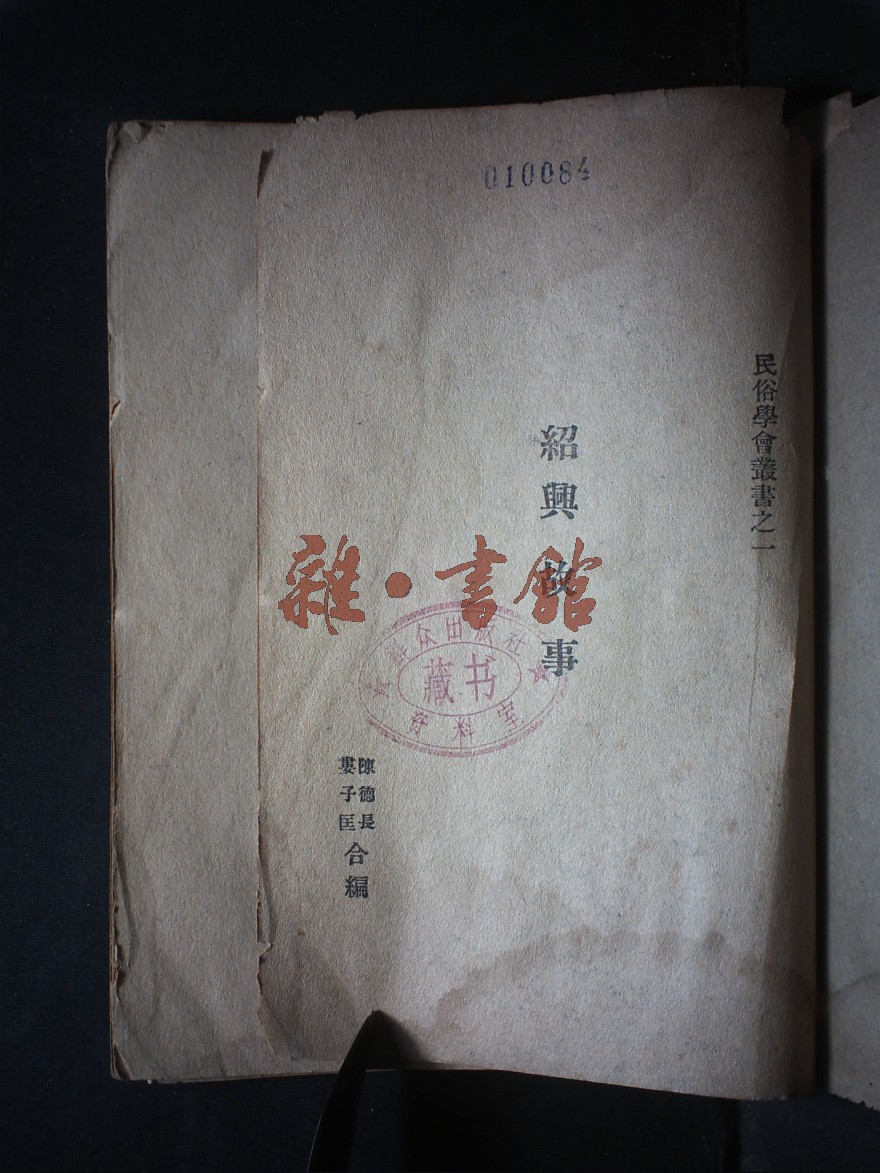 010084
民俗學會叢書之一
紹興故事
雜·書館
群众出版社
藏书
资料室
陳德長
婁子匡
合編